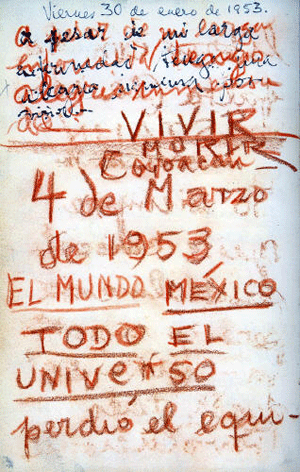 Viernes 30 de enero de 1953.
a pesar de mi larga
enfermedad, tengo
alegria
VIVIR
MORIR
Coyoacan
4 de Marzo
de 1953,
EL MUNDO MÉXICO
TODO EL
UNIVE*SO
perdió el equi-